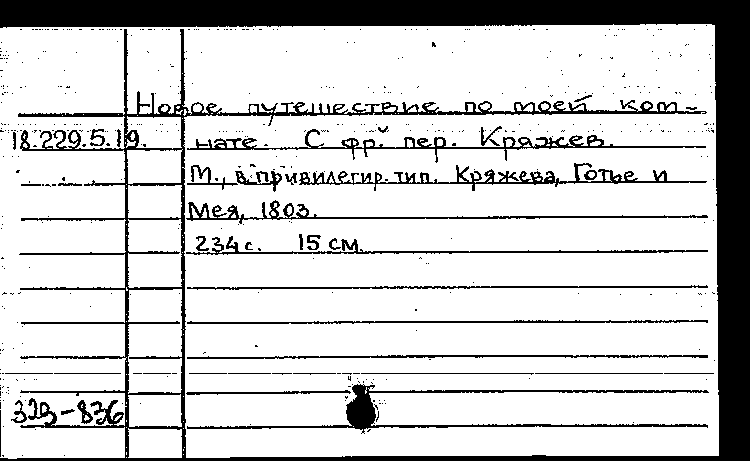 Новое путешествие по моей ком-
18.229.5.19. нате. С фр. пер. Кряжев.
М., в привилегир. тип. Кряжева, Готье и
Мея, 1803.
234 с. 15 см.
323-836